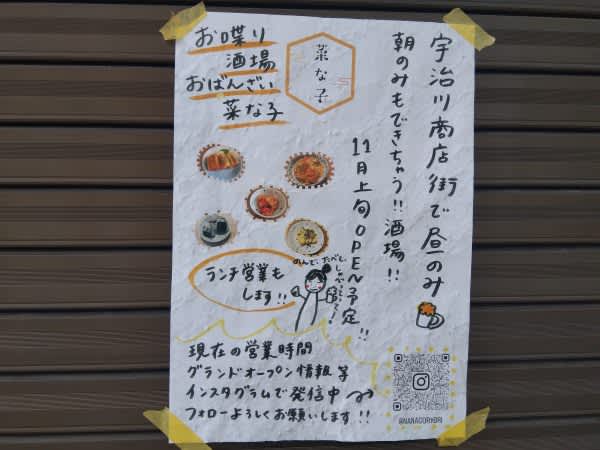 宇治川商店街で昼のみ
朝のみもできちゃう!!酒場!!
11月上旬OPEN予定!!
菜な子
お喋り
酒場
おばんざい
菜な子
のんで、たべて、
しゃべって〜!
ランチ営業も
します!!
現在の営業時間
グランドオープン情報等
インスタグラムで発信中
フォローよろしくお願いします!!